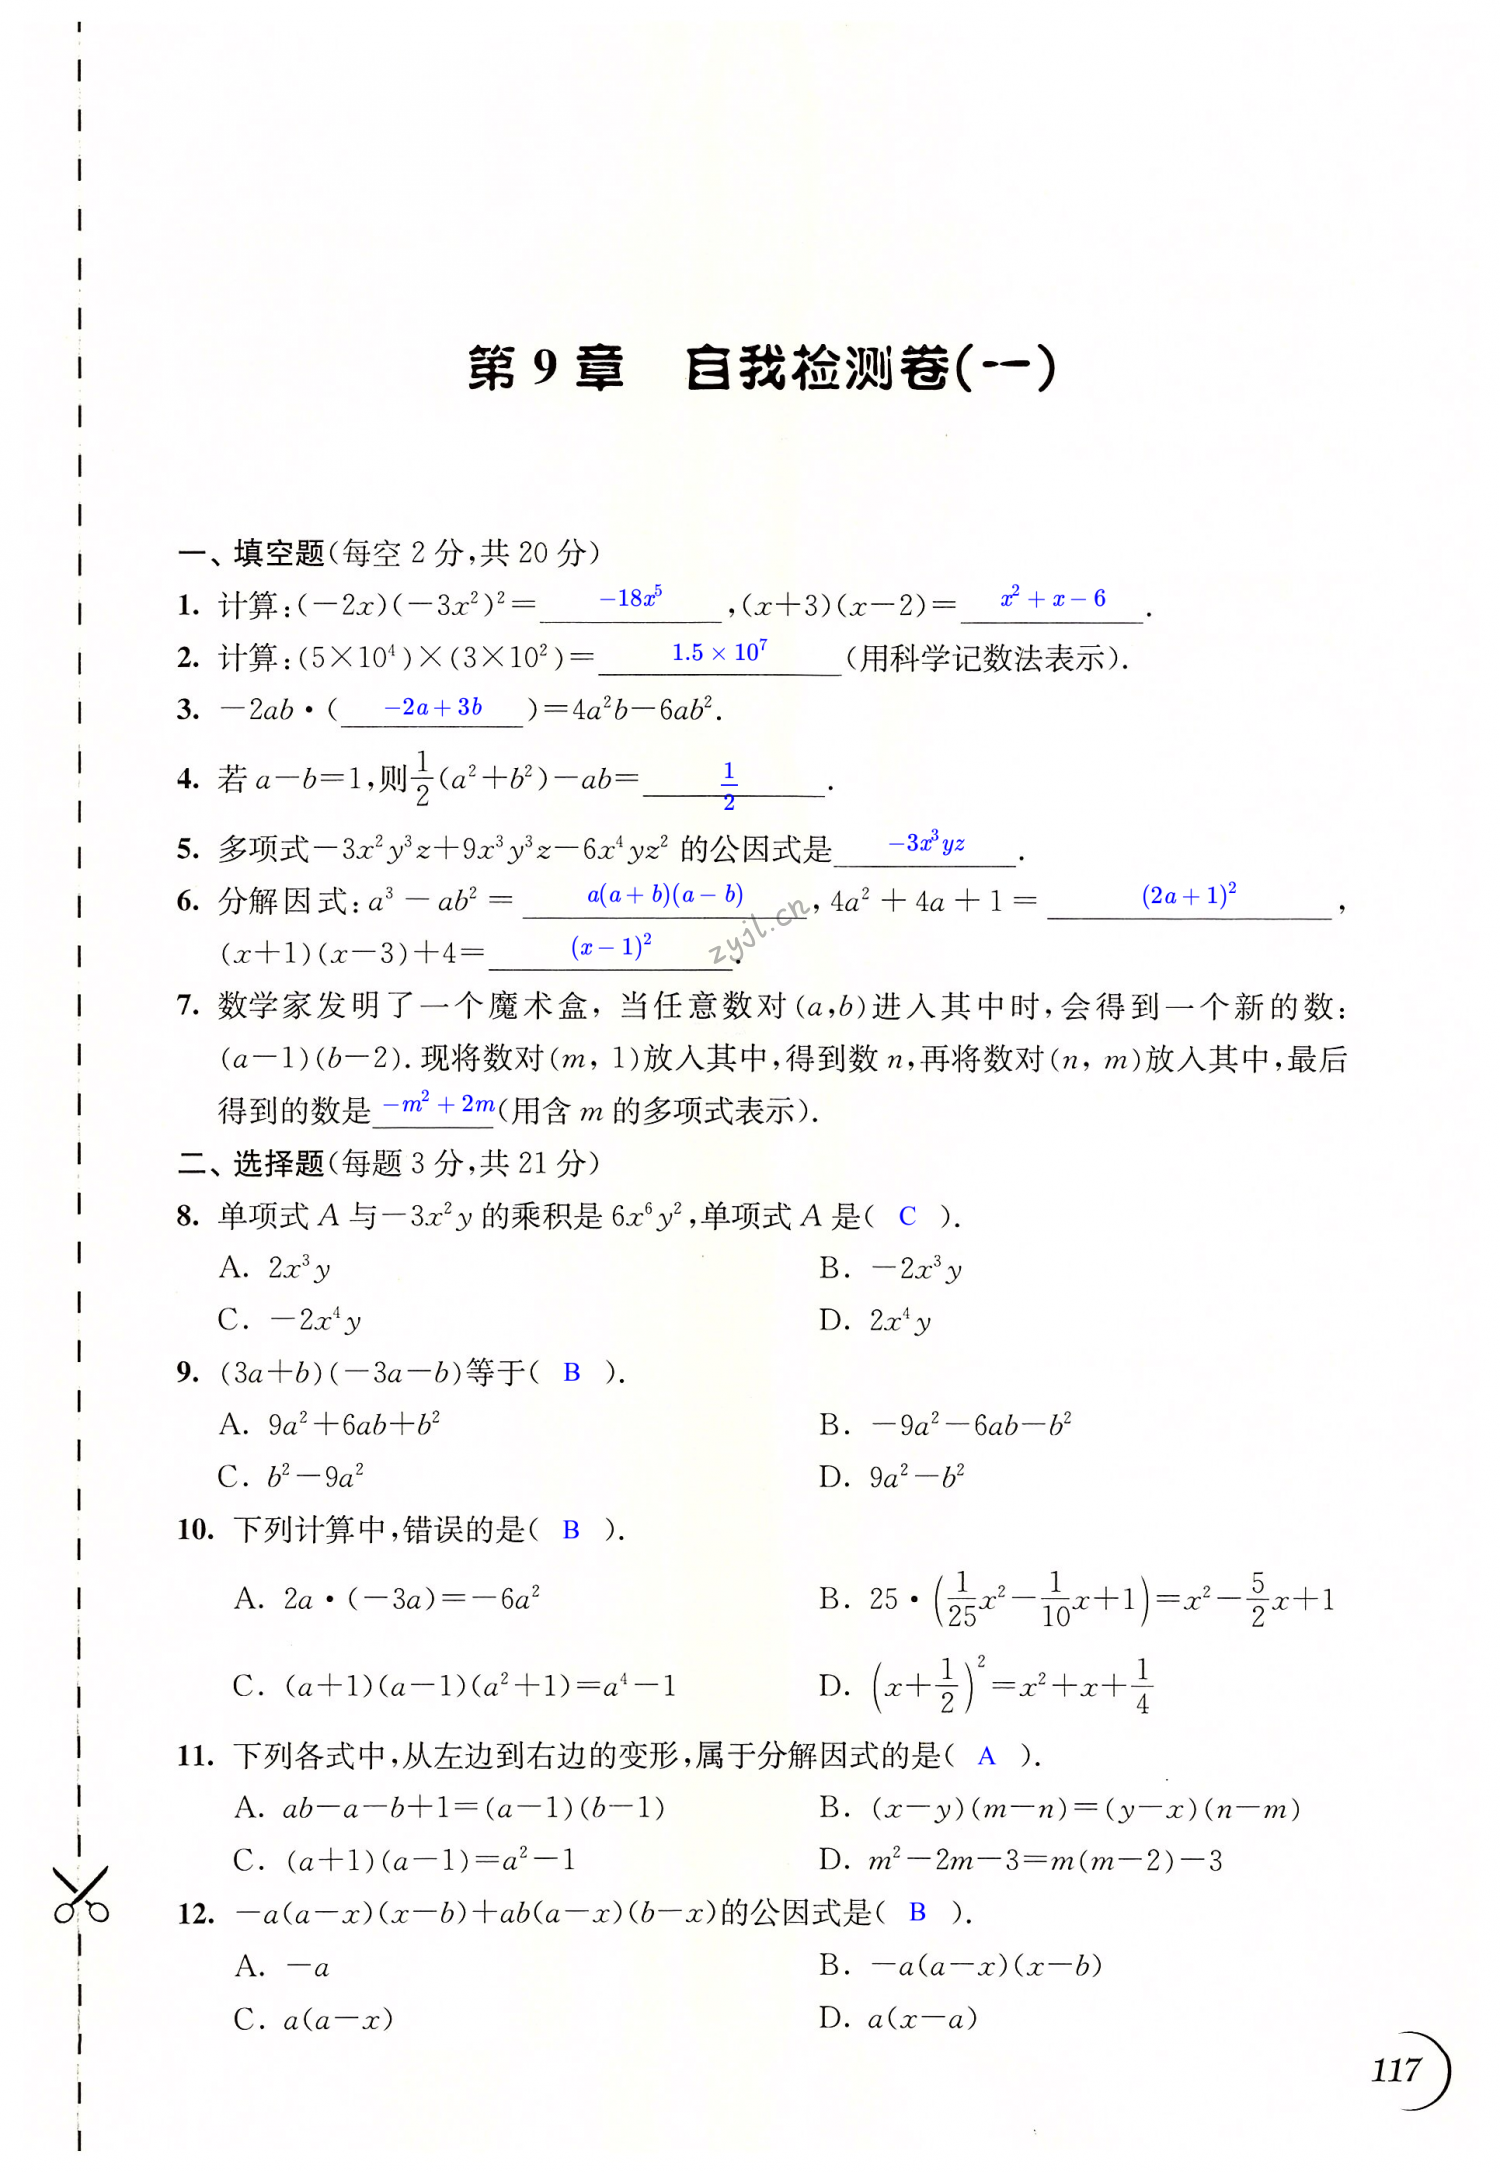 第 9 章　自我检测卷(一)
一、填空题(每空 2 分,共 20 分)
1. 计算:(−2x)(−3x²)²= −18x⁵ ,(x+3)(x−2)= x² + x − 6 .
2. 计算:(5×10⁴)×(3×10²)= 1.5 × 10⁷ (用科学记数法表示).
3. −2ab·( −2a + 3b )=4a²b−6ab².
4. 若 a−b=1,则 1/2 (a²+b²)−ab= 1/2 .
5. 多项式−3x²y³z+9x³y³z−6x⁴yz² 的公因式是 −3x³yz .
6. 分解因式:a³ − ab² = a(a + b)(a − b) , 4a² + 4a + 1 = (2a + 1)² ,
(x+1)(x−3)+4= (x − 1)² .
zyjl.cn
7. 数学家发明了一个魔术盒, 当任意数对(a,b)进入其中时,会得到一个新的数:
(a−1)(b−2). 现将数对(m, 1)放入其中,得到数 n,再将数对(n, m)放入其中,最后
得到的数是 −m² + 2m (用含 m 的多项式表示).
二、选择题(每题 3 分,共 21 分)
8. 单项式 A 与−3x²y 的乘积是 6x⁶y²,单项式 A 是( C ).
A. 2x³y B. −2x³y
C. −2x⁴y D. 2x⁴y
9. (3a+b)(−3a−b)等于( B ).
A. 9a²+6ab+b² B. −9a²−6ab−b²
C. b²−9a² D. 9a²−b²
10. 下列计算中,错误的是( B ).
A. 2a·(−3a)=−6a² B. 25·(1/25 x²−1/10 x+1)=x²−5/2 x+1
C. (a+1)(a−1)(a²+1)=a⁴−1 D. (x+1/2)²=x²+x+1/4
11. 下列各式中,从左边到右边的变形,属于分解因式的是( A ).
A. ab−a−b+1=(a−1)(b−1) B. (x−y)(m−n)=(y−x)(n−m)
C. (a+1)(a−1)=a²−1 D. m²−2m−3=m(m−2)−3
12. −a(a−x)(x−b)+ab(a−x)(b−x)的公因式是( B ).
A. −a B. −a(a−x)(x−b)
C. a(a−x) D. a(x−a)
117